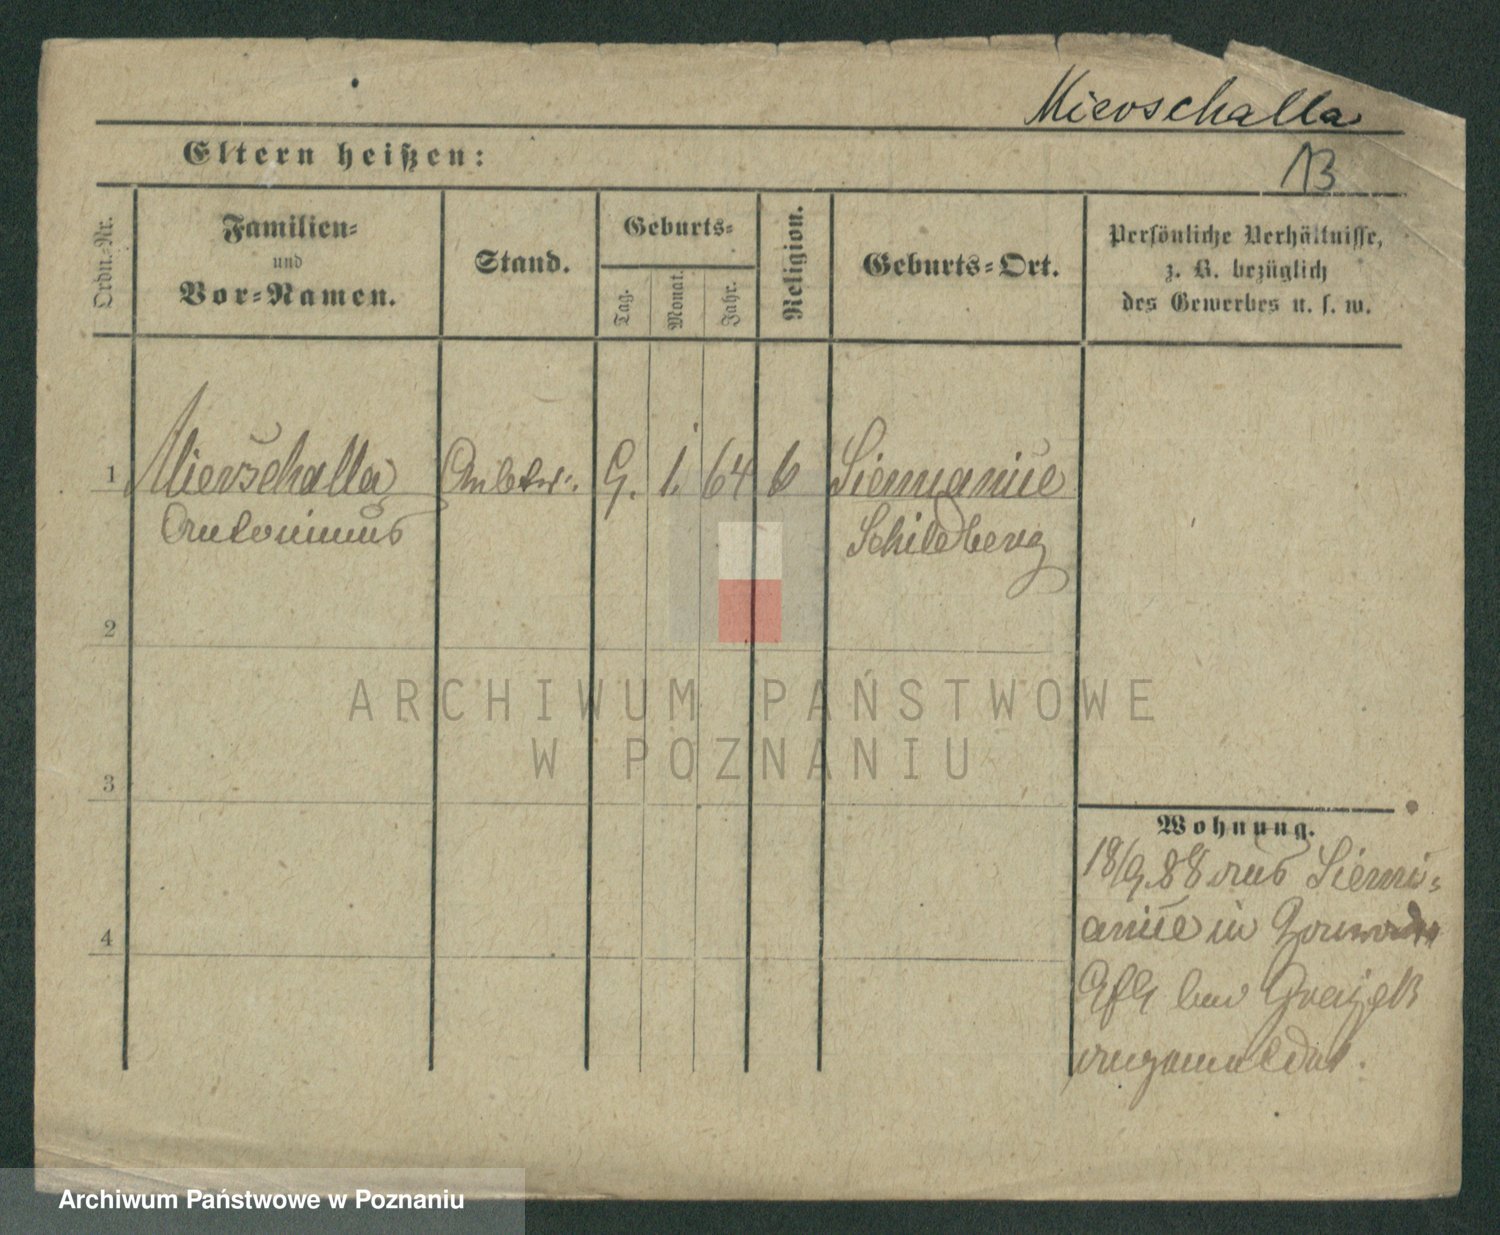 Mierschalla
13
Eltern heißen:
Ordn.-Nr.
Familien-
und
Vor-Namen.
Stand.
Geburts-
Tag.
Monat.
Jahr.
Religion.
Geburts-Ort.
Persönliche Verhältnisse,
z. B. bezüglich
des Gewerbes u. s. w.
1 Mierschalla 9. 1. 64 Siemianice
Antonimus Schildberg
2
3
4
ARCHIWUM PAŃSTWOWE
W POZNANIU
Wohnung.
18/9.88 aus Siemi-
anice in
bei
angemeldet.
Archiwum Państwowe w Poznaniu